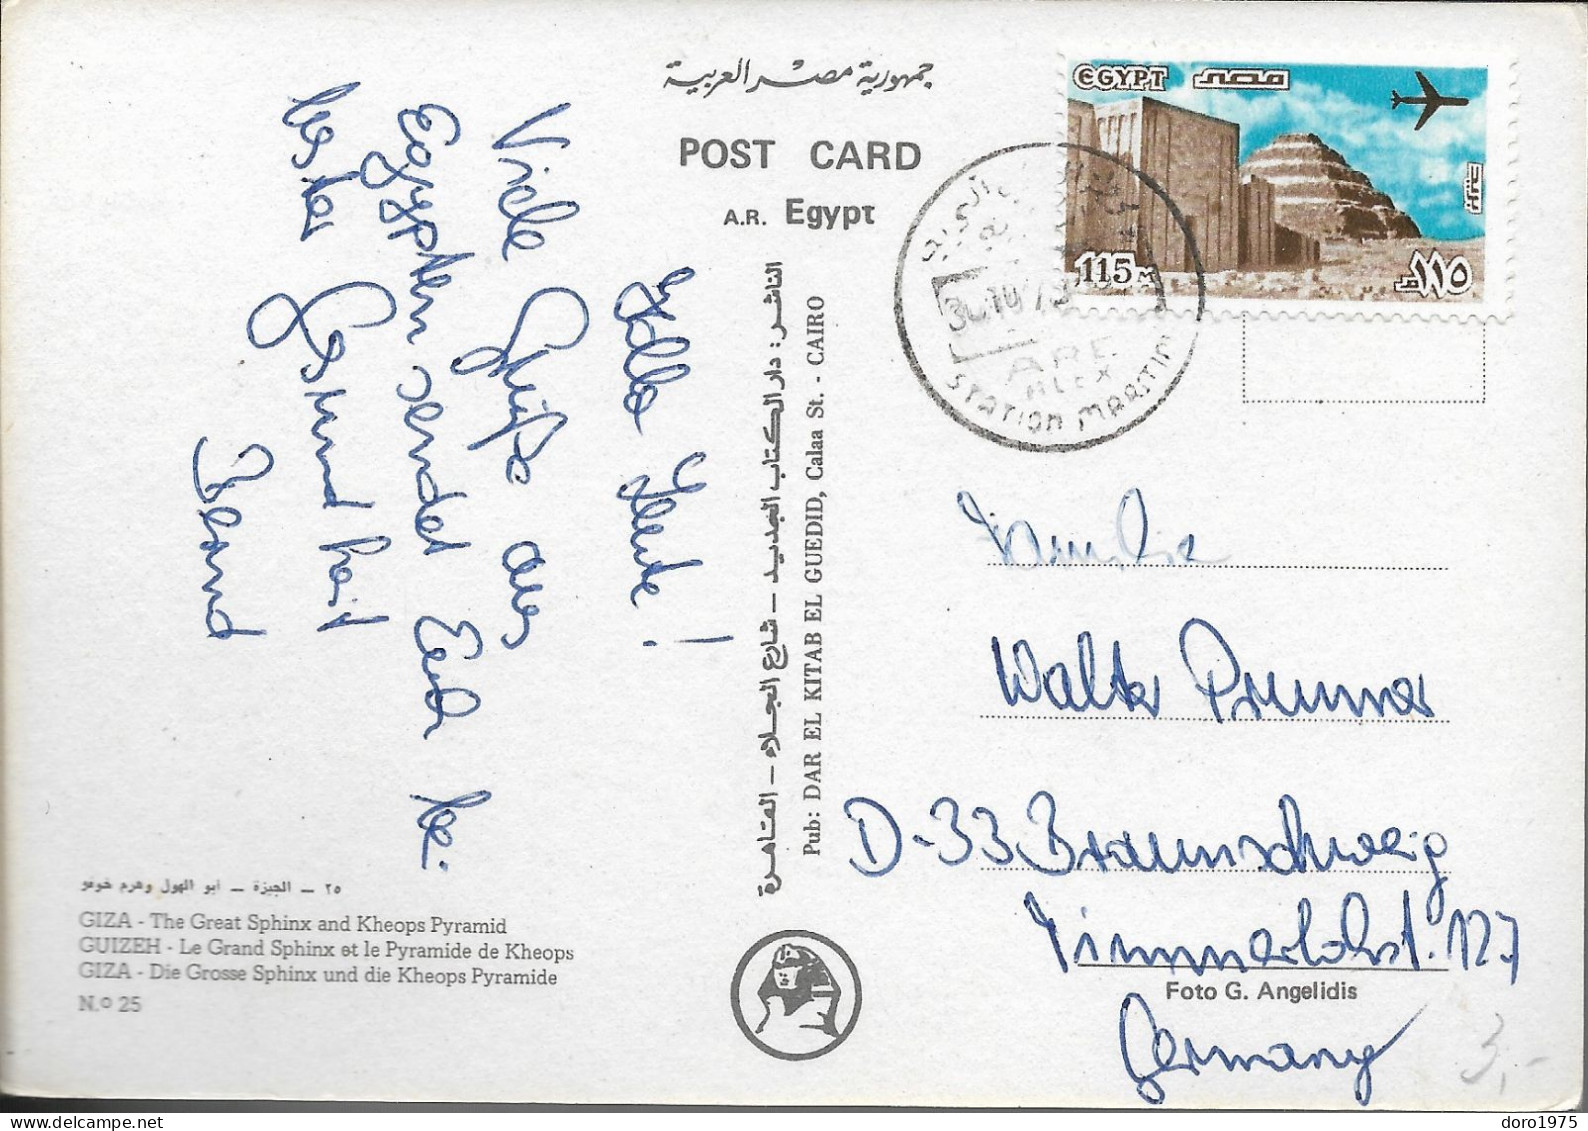 جمهورية مصر العربية
POST CARD
A.R. Egypt
EGYPT مصر
115 M
١١٥
30 JU 79
ARE
ALEX
STATION MARITIM
Hallo Leute!
Viele Grüße aus
Egypten sendet Euch
Bernd
الناشر : دار الكتاب الجديد - شارع الجلاء - القاهرة
Pub: DAR EL KITAB EL GUEDID, Calaa St. - CAIRO
Familie
Walter
D-33 Braunschweig
Germany
Foto G. Angelidis
٢٥ - الجيزة - أبو الهول وهرم خوفو
GIZA - The Great Sphinx and Kheops Pyramid
GUIZEH - Le Grand Sphinx et le Pyramide de Kheops
GIZA - Die Grosse Sphinx und die Kheops Pyramide
N.º 25
3,-
doro1975